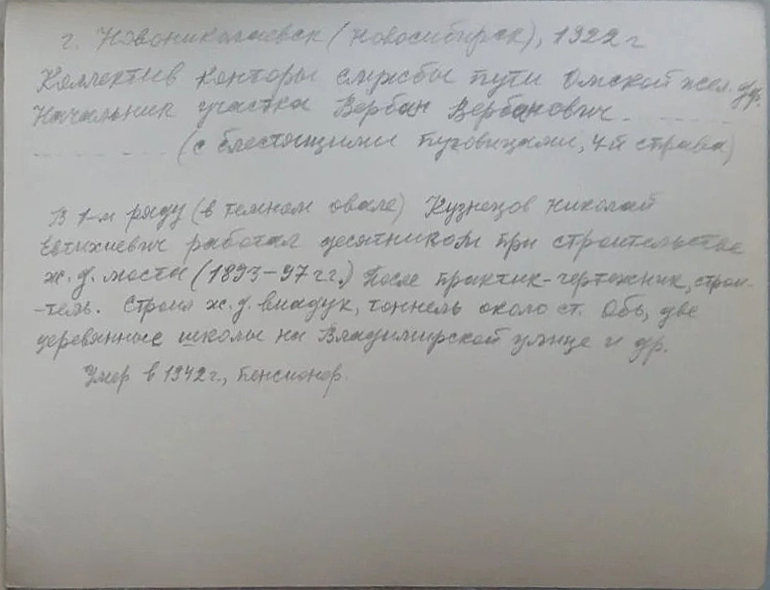 г. Новониколаевск (Новосибирск), 1922 г
Коллектив конторы службы пути Омской жел. др.
Начальник участка Вербан Вербанович
(с блестящими пуговицами, 4й справа)
В 1-м ряду (в темном овале) Кузнецов Николай
Евтихиевич работал десятником при строительстве
ж.д. моста (1893-97 гг.) После практик-чертежник, строи-
-тель. Строил ж.д. виадук, тоннель около ст. Обь, две
деревянные школы на Владимирской улице и др.
Умер в 1942 г., пенсионер.